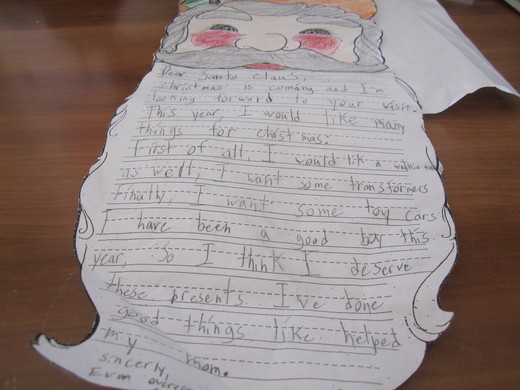 Dear Santa Claus,
christmas is coming and I'm
looking forward to your visit.
This year, I would like many
things for christmas.
First of all, I would lik a
as well, I want some transformers
Finally, I want some toy cars
I have been a good boy this
year, so I think I deserve
these presents. I've done
good things like helped
my mom.
sincerly,